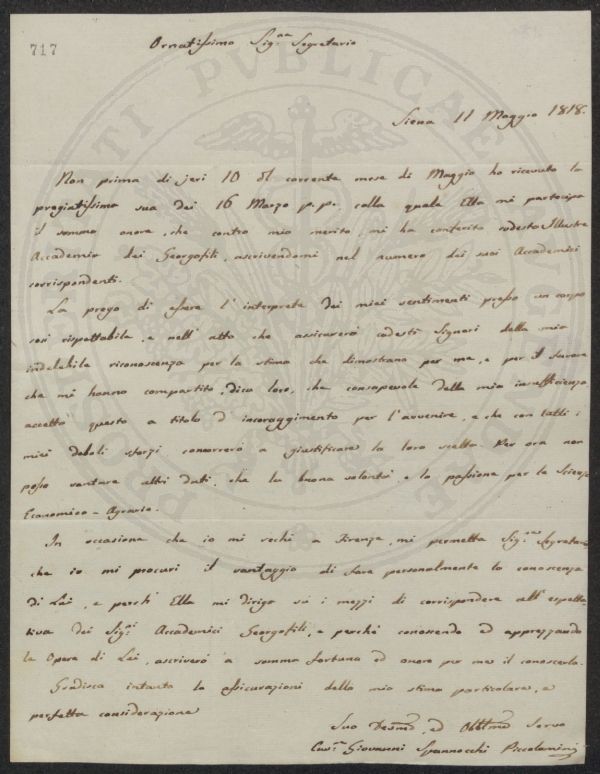 717
Ornatissimo Sig.re Segretario
Siena 11 Maggio 1818.
Non prima di jeri 10 del corrente mese di Maggio ho ricevuto la
pregiatissima sua dei 16 Marzo p.p., colla quale Ella mi partecipa
il sommo onore, che contro mio merito, mi ha conferito codesta Illustre
Accademia dei Georgofili, ascrivendomi nel numero dei suoi Accademici
corrispondenti.
La prego di essere l'interprete dei miei sentimenti presso un corpo
così rispettabile, e nell'atto che assicurerà codesti Signori della mia
indelebile riconoscenza per la stima che dimostrano per me, e per il favore
che mi hanno compartito, dica loro, che consapevole della mia insufficienza
accetto questo a titolo d'incoraggimento per l'avvenire, e che con tutti i
miei deboli sforzi concorrerò a giustificare la loro scelta. Per ora non
posso vantare altri dati, che la buona volontà e la passione per la Scienza
Economico-Agraria.
In occasione che io mi rechi a Firenze, mi permetta Sig.re Segretario
che io mi procuri il vantaggio di fare personalmente la conoscenza
di Lei, e perché Ella mi diriga su i mezzi di corrispondere all'espetta
tiva dei Sig.ri Accademici Georgofili, e perché conoscendo ed apprezzando
le Opere di Lei, ascriverò a somma fortuna ed onore per me il conoscerla.
Gradisca intanto le assicurazioni della mia stima particolare, e
perfetta considerazione
Suo Devmo ed Obblmo Servo
Cav.re Giovanni Spannocchi Piccolomini
PROSPERITATI PVBLICAE AVGENDAE